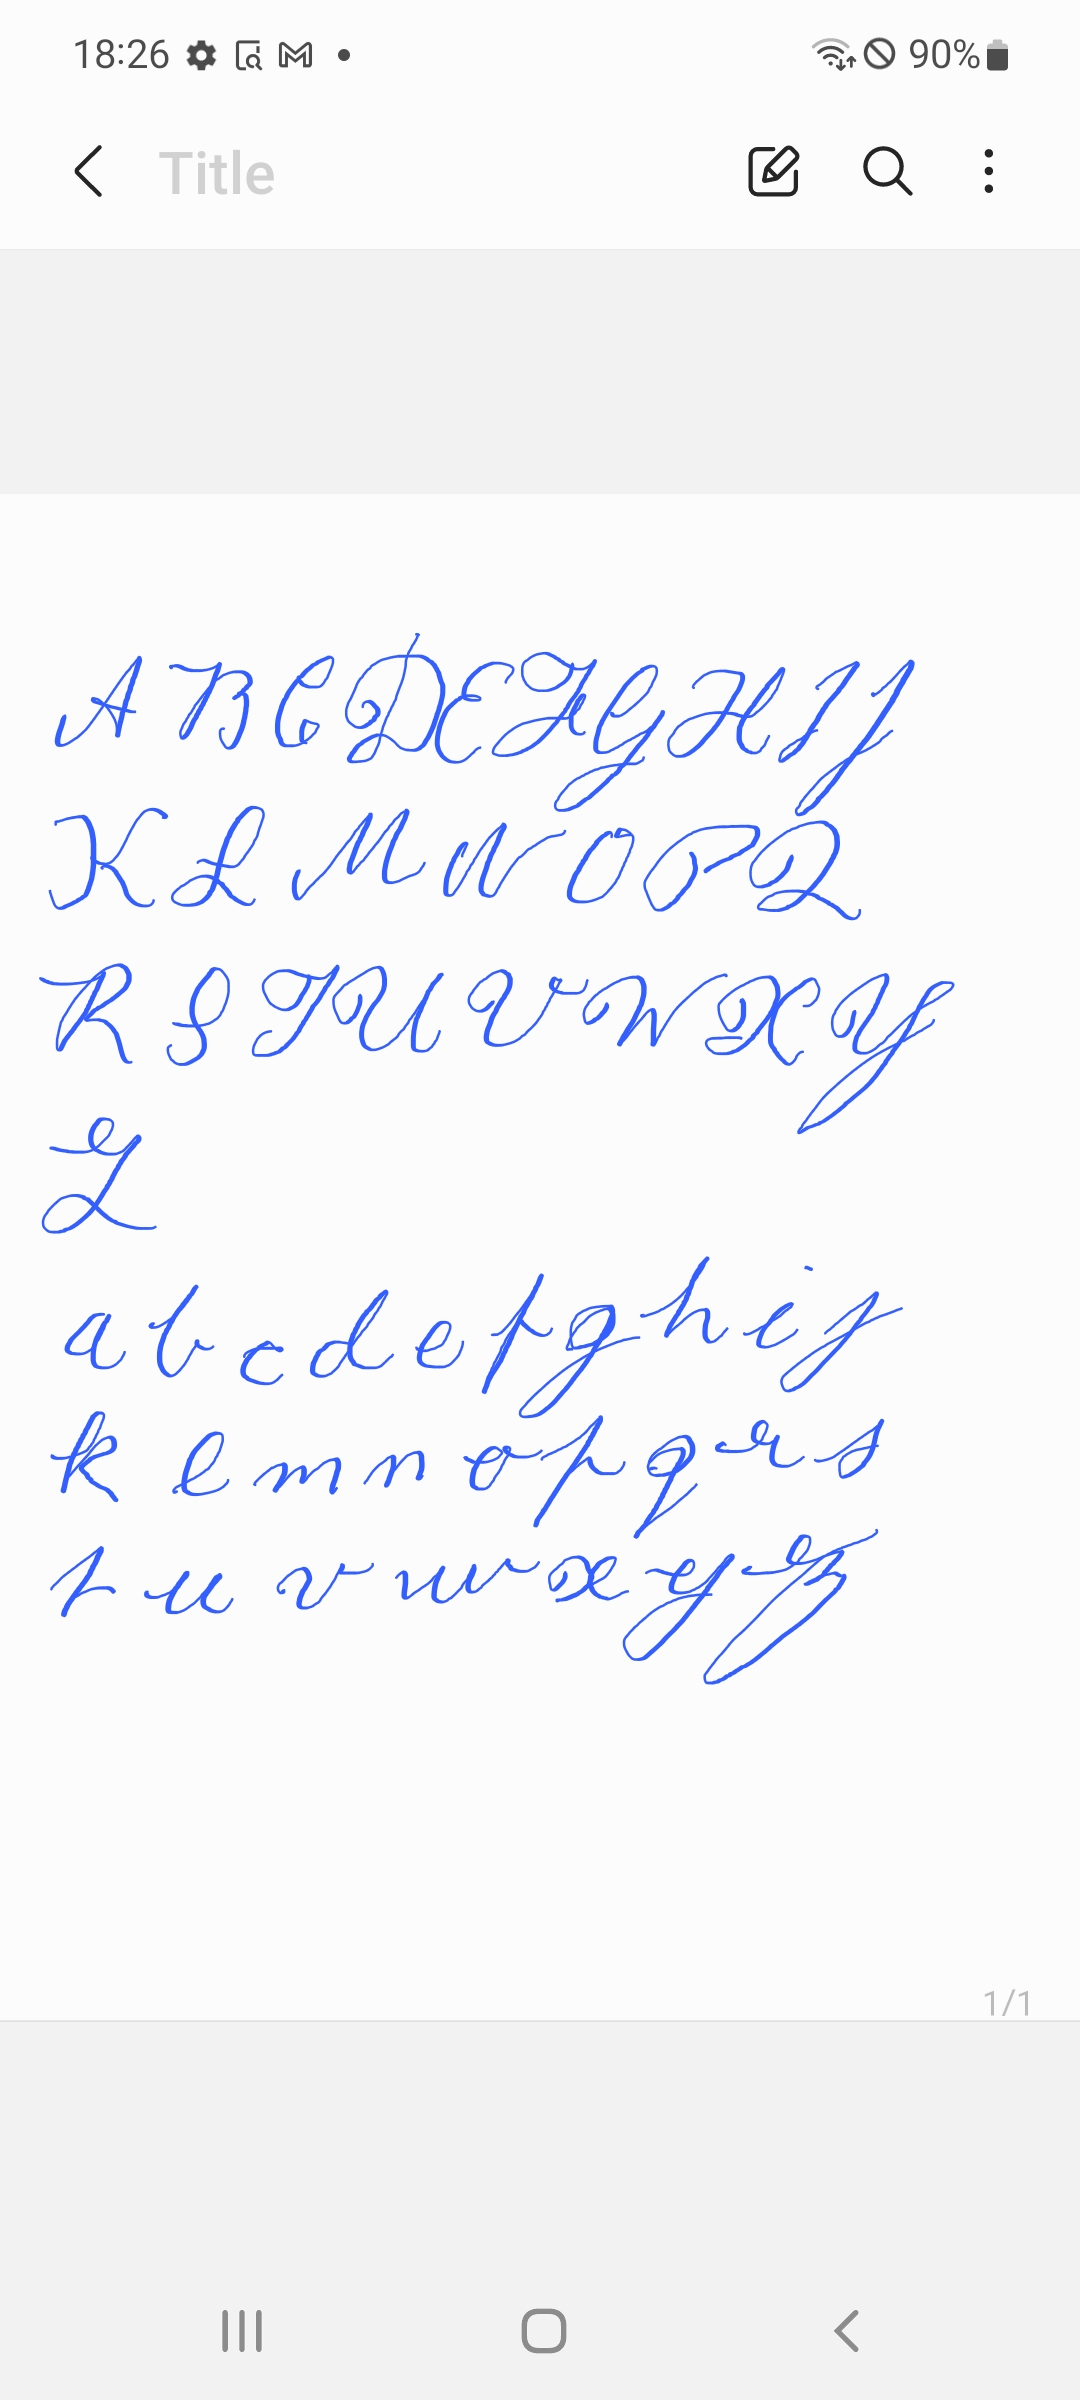 18:26 90%
Title
A B C D E F G H I J
K L M N O P Q
R S T U V W X Y
Z
a b c d e f g h i j
k l m n o p q r s
t u v w x y z
1/1